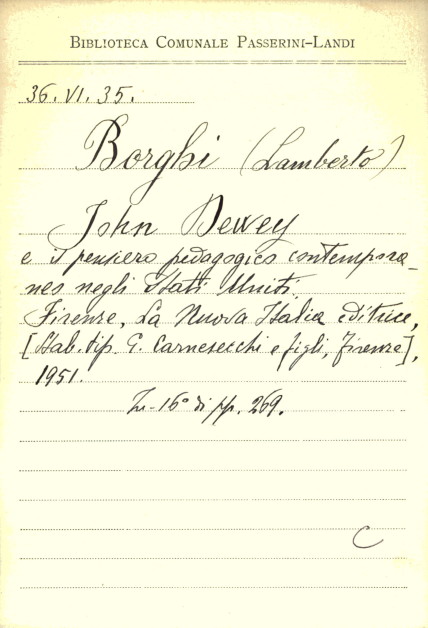 BIBLIOTECA COMUNALE PASSERINI-LANDI
36. VI. 35.
Borghi (Lamberto)
John Dewey
e il pensiero pedagogico contempora-
neo negli Stati Uniti.
Firenze, La Nuova Italia editrice,
[Stab. tip. G. Carnesecchi e figli, Firenze],
1951.
In-16° di pp. 269.
C